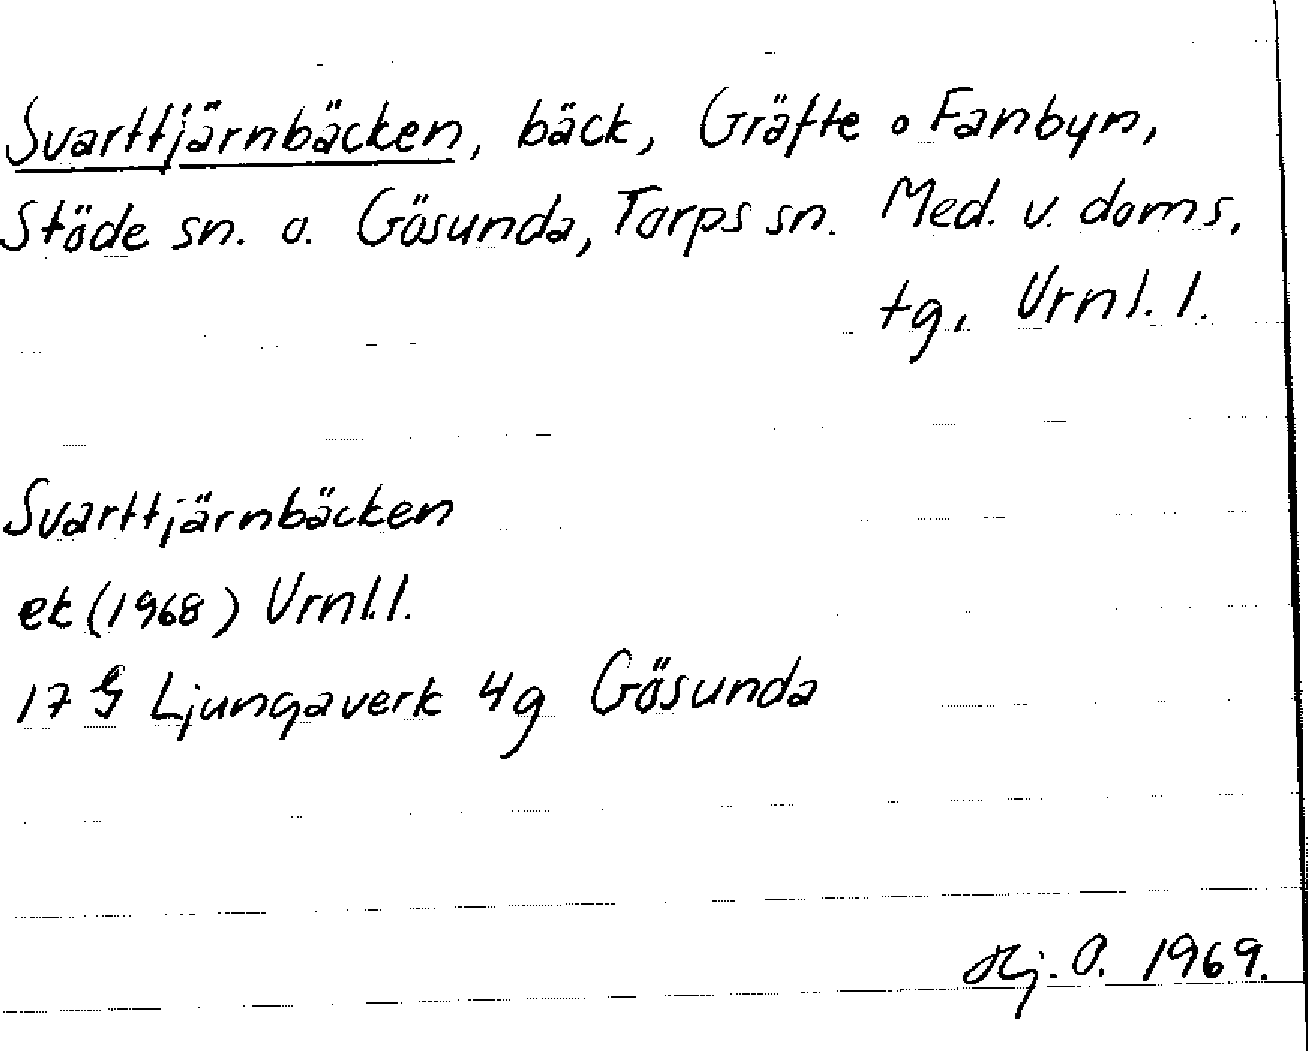 Svarttjärnbäcken, bäck, Gräfte o Fanbyn,
Stöde sn. o. Gösunda, Torps sn. Med. v. doms.
tg, Vrnl. l.
Svarttjärnbäcken
ek (1968) Vrnl. l.
17 G Ljungaverk 4g Gösunda
Hj. O. 1969.